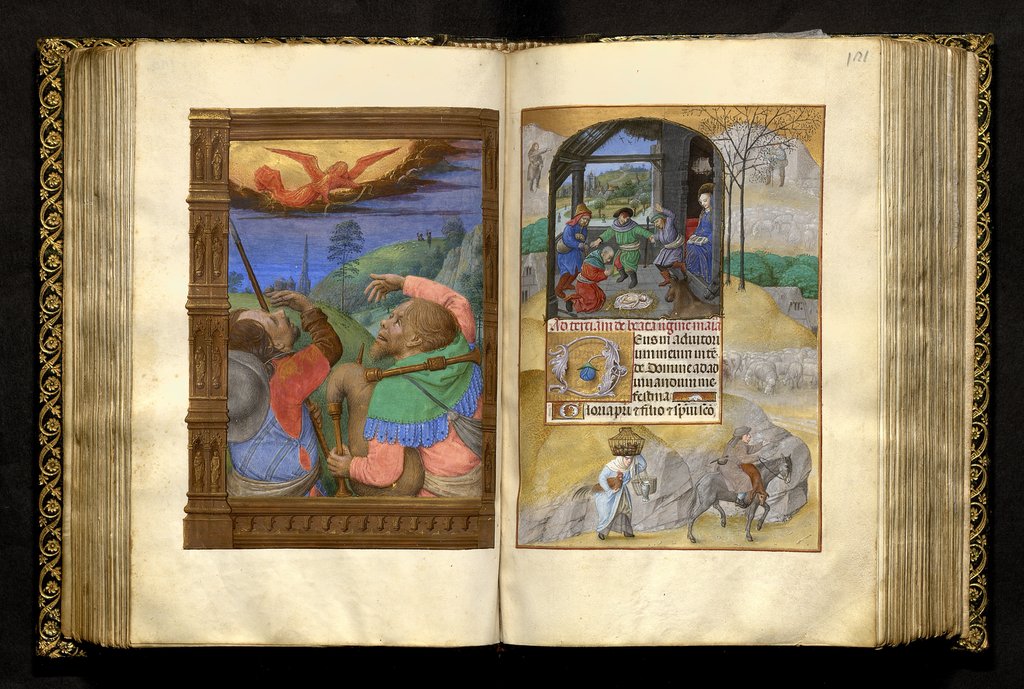 121
Ad terciam de beata virgine maria
Eus in adiutori
um meum inte
de. Domine ad ad
iuuandum me
festina
Gloria pri & filio & spui sco